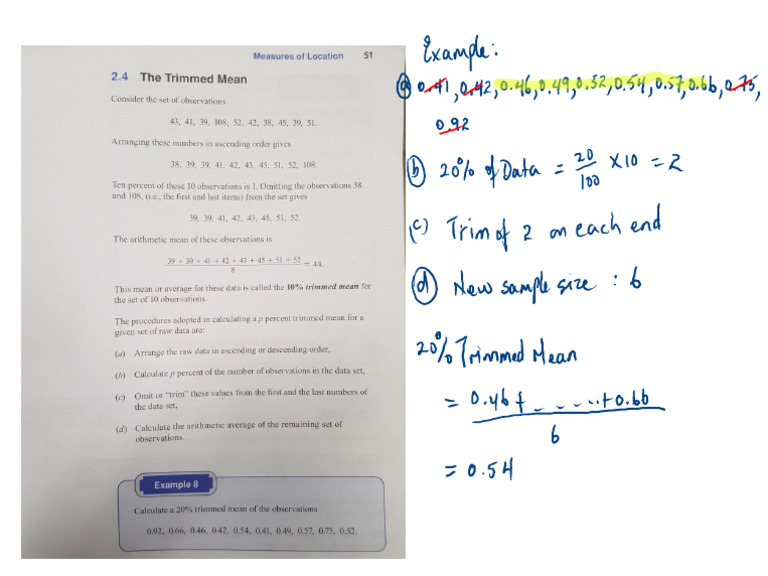 Measures of Location 51
2.4 The Trimmed Mean
Consider the set of observations
43, 41, 39, 108, 52, 42, 38, 45, 39, 51.
Arranging these numbers in ascending order gives
38, 39, 39, 41, 42, 43, 45, 51, 52, 108.
Ten percent of these 10 observations is 1. Omitting the observations 38
and 108, (i.e., the first and last items) from the set gives
39, 39, 41, 42, 43, 45, 51, 52.
The arithmetic mean of these observations is
39 + 39 + 41 + 42 + 43 + 45 + 51 + 52
8
= 44.
This mean or average for these data is called the 10% trimmed mean for
the set of 10 observations.
The procedures adopted in calculating a p percent trimmed mean for a
given set of raw data are:
(a) Arrange the raw data in ascending or descending order,
(b) Calculate p percent of the number of observations in the data set,
(c) Omit or "trim" these values from the first and the last numbers of
the data set,
(d) Calculate the arithmetic average of the remaining set of
observations.
Example 8
Calculate a 20% trimmed mean of the observations
0.92, 0.66, 0.46, 0.42, 0.54, 0.41, 0.49, 0.57, 0.75, 0.52.
Example:
(a) 0.41, 0.42, 0.46, 0.49, 0.52, 0.54, 0.57, 0.66, 0.75,
0.92
(b) 20% of Data = 20/100 × 10 = 2
(c) Trim of 2 on each end
(d) New sample size : 6
20% Trimmed Mean
= 0.46 + - - - .. + 0.66
6
= 0.54